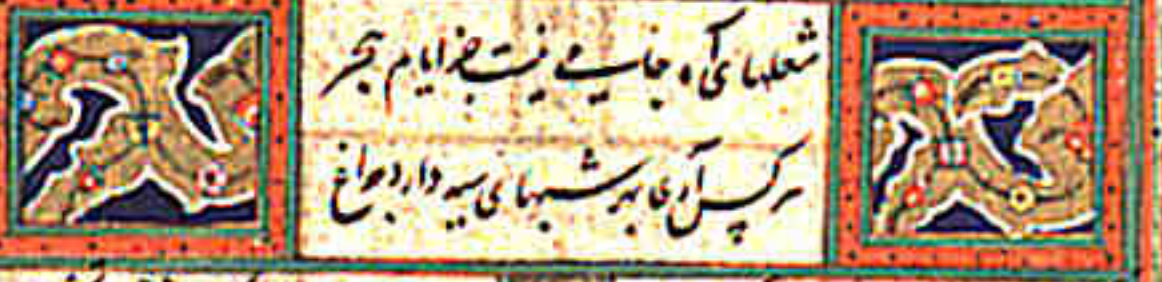 شعلهای آه جامی نیست جز ایام هجر
هر کس آری بهر شبهای سیه دارد چراغ